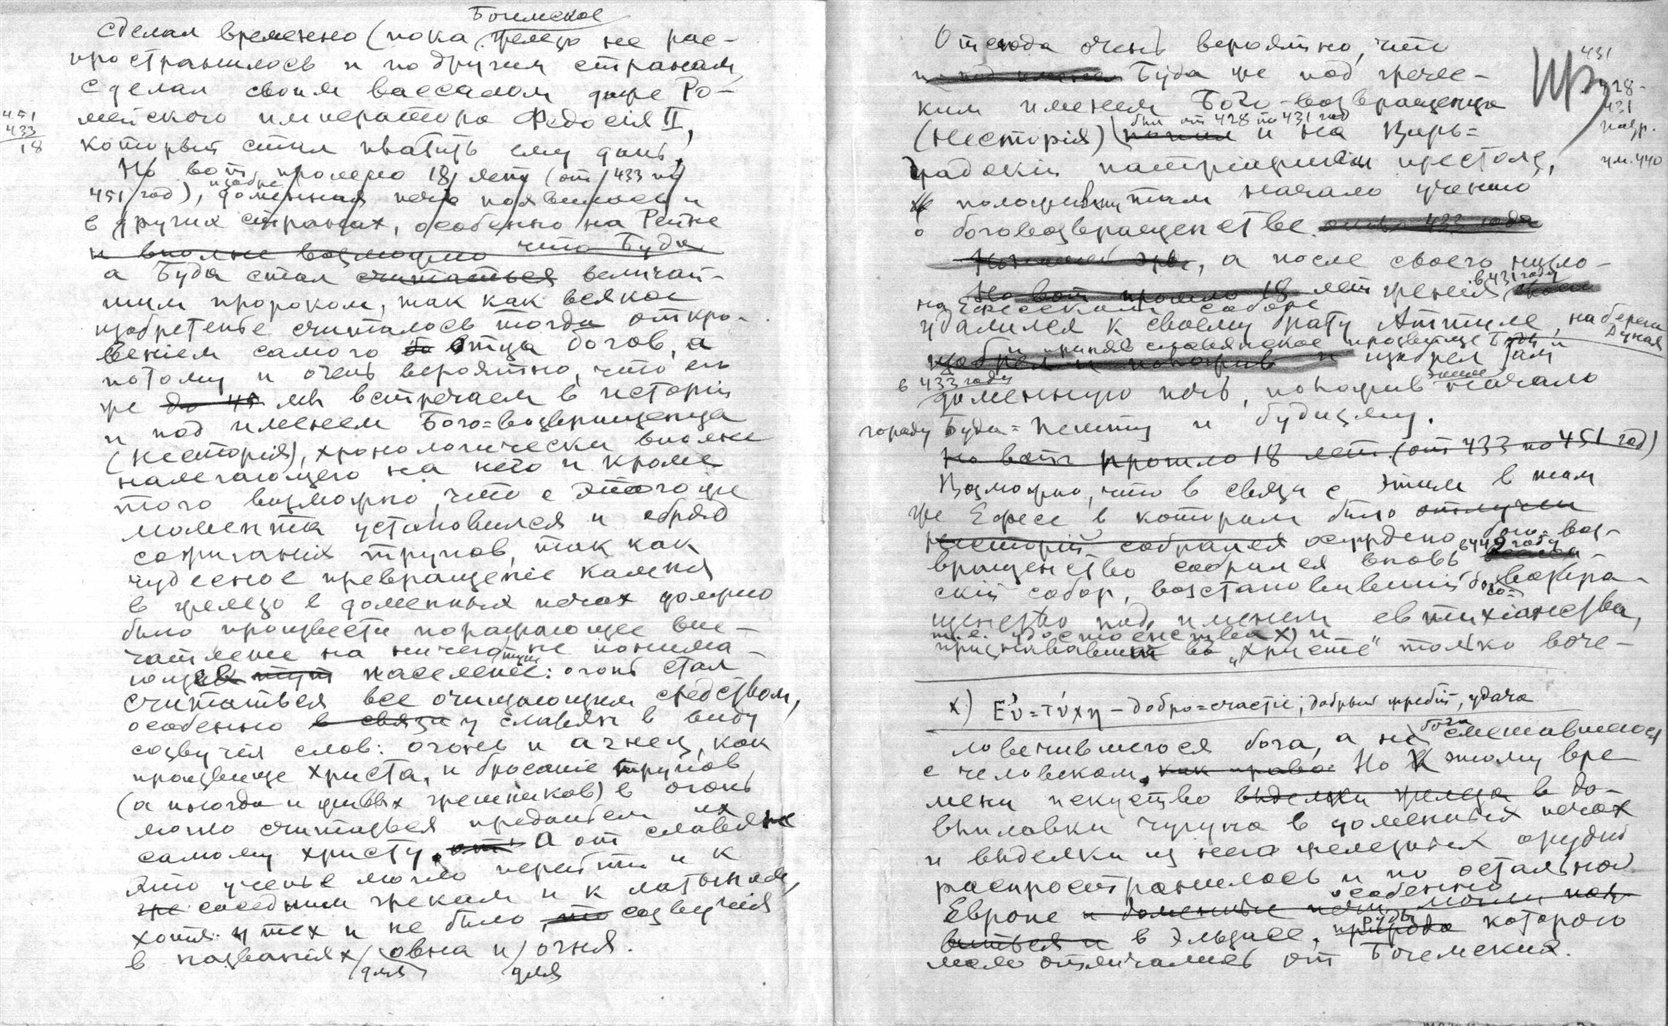 Богемское
сделал временно (пока железо не рас-
пространилось и по другим странам,
сделал своим вассалом даже Ро-
мейского императора Федосія II,
который стал платить ему дань,
451
433
18
Но вот прошло 18 лет (от 433 по
451 год), доменная печь появилась и
в других странах, особенно на Рейне
и вполне возможно что Буда
а Буда стал считаться величай-
шим пророком, так как всякое
изобретенье считалось тогда откро-
веніем самого отца богов, а
потому и очень вероятно, что его
же до 45 мы встречаем в исторіи
и под именем Бого=возвращенца
(Несторія), хронологически вполне
налегающего на него и кроме
того возможно, что с этого же
момента установился и обряд
сожиганія трупов, так как
чудесное превращеніе камня
в железо в доменных печах должно
было произвести поражающее впе-
чатление на ничего не понима-
ющее тут население: огонь стал
считаться все очищающим средством,
особенно в связи у славян в виду
созвучія слов: огонь и агнец, как
прозвище Христа, и бросаніе трупов
(а иногда и живых грешников) в огонь
могло считаться преданьем их
самому Христу. А от славян
это ученье могло перейти и к
же соседним грекам и к латынам,
хотя у тех и не было, созвучія
в названіях овна и огня.
для для
Отсюда очень вероятно, что
Буда же под гречес-
ким именем Бого-возвращенца
был от 428 по 431 год
(Несторія) и на Царь=
градскій патріаршій престол,
положившим начало ученію
о боговозвращенстве после 433 года
, а после своего низло-
Но вот прошло 18 лет женія в 431 году
на Ефесском соборе
удалился к своему брату Аттиле, на берега
Дуная
и принял славянское прозвище Буда и
изобрел там
в 433 году
доменную печь, положив начало
городу Буда=Пешту и будизму.
но вот прошло 18 лет (от 433 по 451 год)
Возможно, что в связи с этим в том
же Ефесе в котором было отлучен
Несторій собрался осуждено бого-воз-
вращенство собрался вновь в 449 году
скій собор, возстановившій боговозвра-
щенство под именем евтихіанства,
т.е. удостоенства х) и
признававшій во „Христе" только воче-
х) Εὐ=τύχη – добро=счастіе; добрый жребій, удача
ловечившегося бога, а не бога смешавшегося
с человеком, как права Но К этому вре-
мени искуство выделки железа в до-
выплавки чугуна в доменных печах
и выделки из него железных орудій
распространилось и по остальной
Европе особенно
в Эльзасе, руды природа которого
мало отличались от Богемских.
431
428-
431
патр.
ум. 440